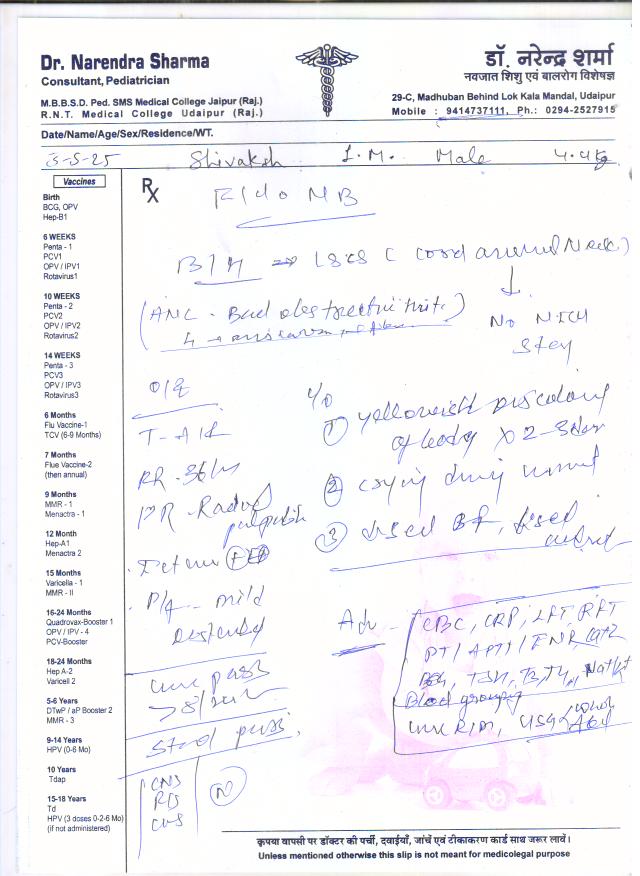 Dr. Narendra Sharma
Consultant, Pediatrician
M.B.B.S.D. Ped. SMS Medical College Jaipur (Raj.)
R.N.T. Medical College Udaipur (Raj.)
डॉ. नरेन्द्र शर्मा
नवजात शिशु एवं बालरोग विशेषज्ञ
29-C, Madhuban Behind Lok Kala Mandal, Udaipur
Mobile : 9414737111, Ph.: 0294-2527915
Date/Name/Age/Sex/Residence/WT.
3-5-25 Shivaksh 1.M. Male 4.4kg
Vaccines
Birth
BCG, OPV
Hep-B1
6 WEEKS
Penta - 1
PCV1
OPV / IPV1
Rotavirus1
10 WEEKS
Penta - 2
PCV2
OPV / IPV2
Rotavirus2
14 WEEKS
Penta - 3
PCV3
OPV / IPV3
Rotavirus3
6 Months
Flu Vaccine-1
TCV (6-9 Months)
7 Months
Flue Vaccine-2
(then annual)
9 Months
MMR - 1
Menactra - 1
12 Month
Hep-A1
Menactra 2
15 Months
Varicella - 1
MMR - II
16-24 Months
Quadrovax-Booster 1
OPV / IPV - 4
PCV-Booster
18-24 Months
Hep A-2
Varicell 2
5-6 Years
DTwP / aP Booster 2
MMR - 3
9-14 Years
HPV (0-6 Mo)
10 Years
Tdap
15-18 Years
Td
HPV (3 doses 0-2-6 Mo)
(if not administered)
Rx
F/do MB
B/H ⇒ LSCS C cord around Neck)
(ANC - Bad obstetric
No NICU
Stay
O/E
T-
RR - 36/m
PR -
P/A - mild
Distended
urine pass
Stool pass.
CNS
RS
CVS
N
1) yellowish
of body x 2-3
2) crying during
3) BF,
Adv - CBC, CRP, LFT, RFT
PT/APTT/INR,
TSH, T3, T4,
Blood grouping
urine R/M, USG whole
Abd
कृपया वापसी पर डॉक्टर की पर्ची, दवाईयाँ, जांचें एवं टीकाकरण कार्ड साथ जरूर लावें।
Unless mentioned otherwise this slip is not meant for medicolegal purpose